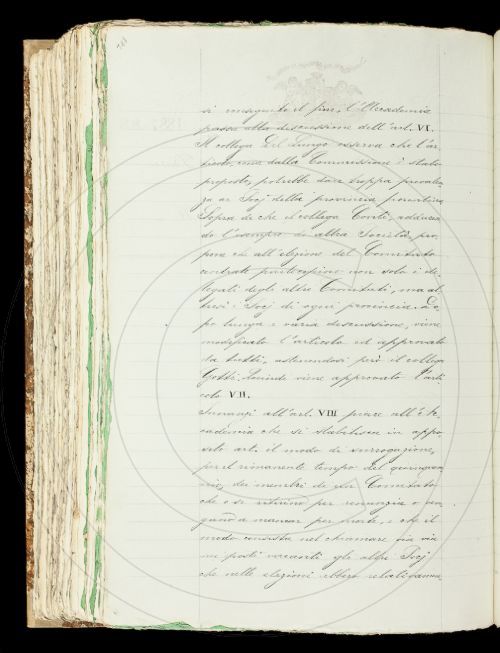 si conseguente il fine, l'Accademia
passa alla discussione dell'art. VI.
Il collega Del Lungo osserva che l'ar-
ticolo, come dalla Commissione è stato
proposto, potrebbe dare troppa prevalen-
za ai Socj della provincia fiorentina
Sopra di che il collega Conti, adducen-
do l'esempio di altra Società, pro-
pone che all'elezione del Comitato
centrale partecipino non solo i de-
legati degli altri Comitati, ma al-
tresì i Socj di ogni provincia. Do-
po lunga e varia discussione, viene
modificato l'articolo ed approvato
da tutti, astenendosi però il collega
Gotti. Quindi viene approvato l'arti-
colo VII.
Innanzi all'art. VIII piace all'Ac-
cademia che si stabilisca in appo-
sito art. il modo di surrogazione,
per il rimanente tempo del quinquen-
nio, dei membri de un Comitato
che o si ritirino per renunzia o ven-
gano a mancar per morte, e che il
modo consista nel chiamare via via
nei posti vacanti gli altri Socj
che nelle elezioni ebbero relativamen